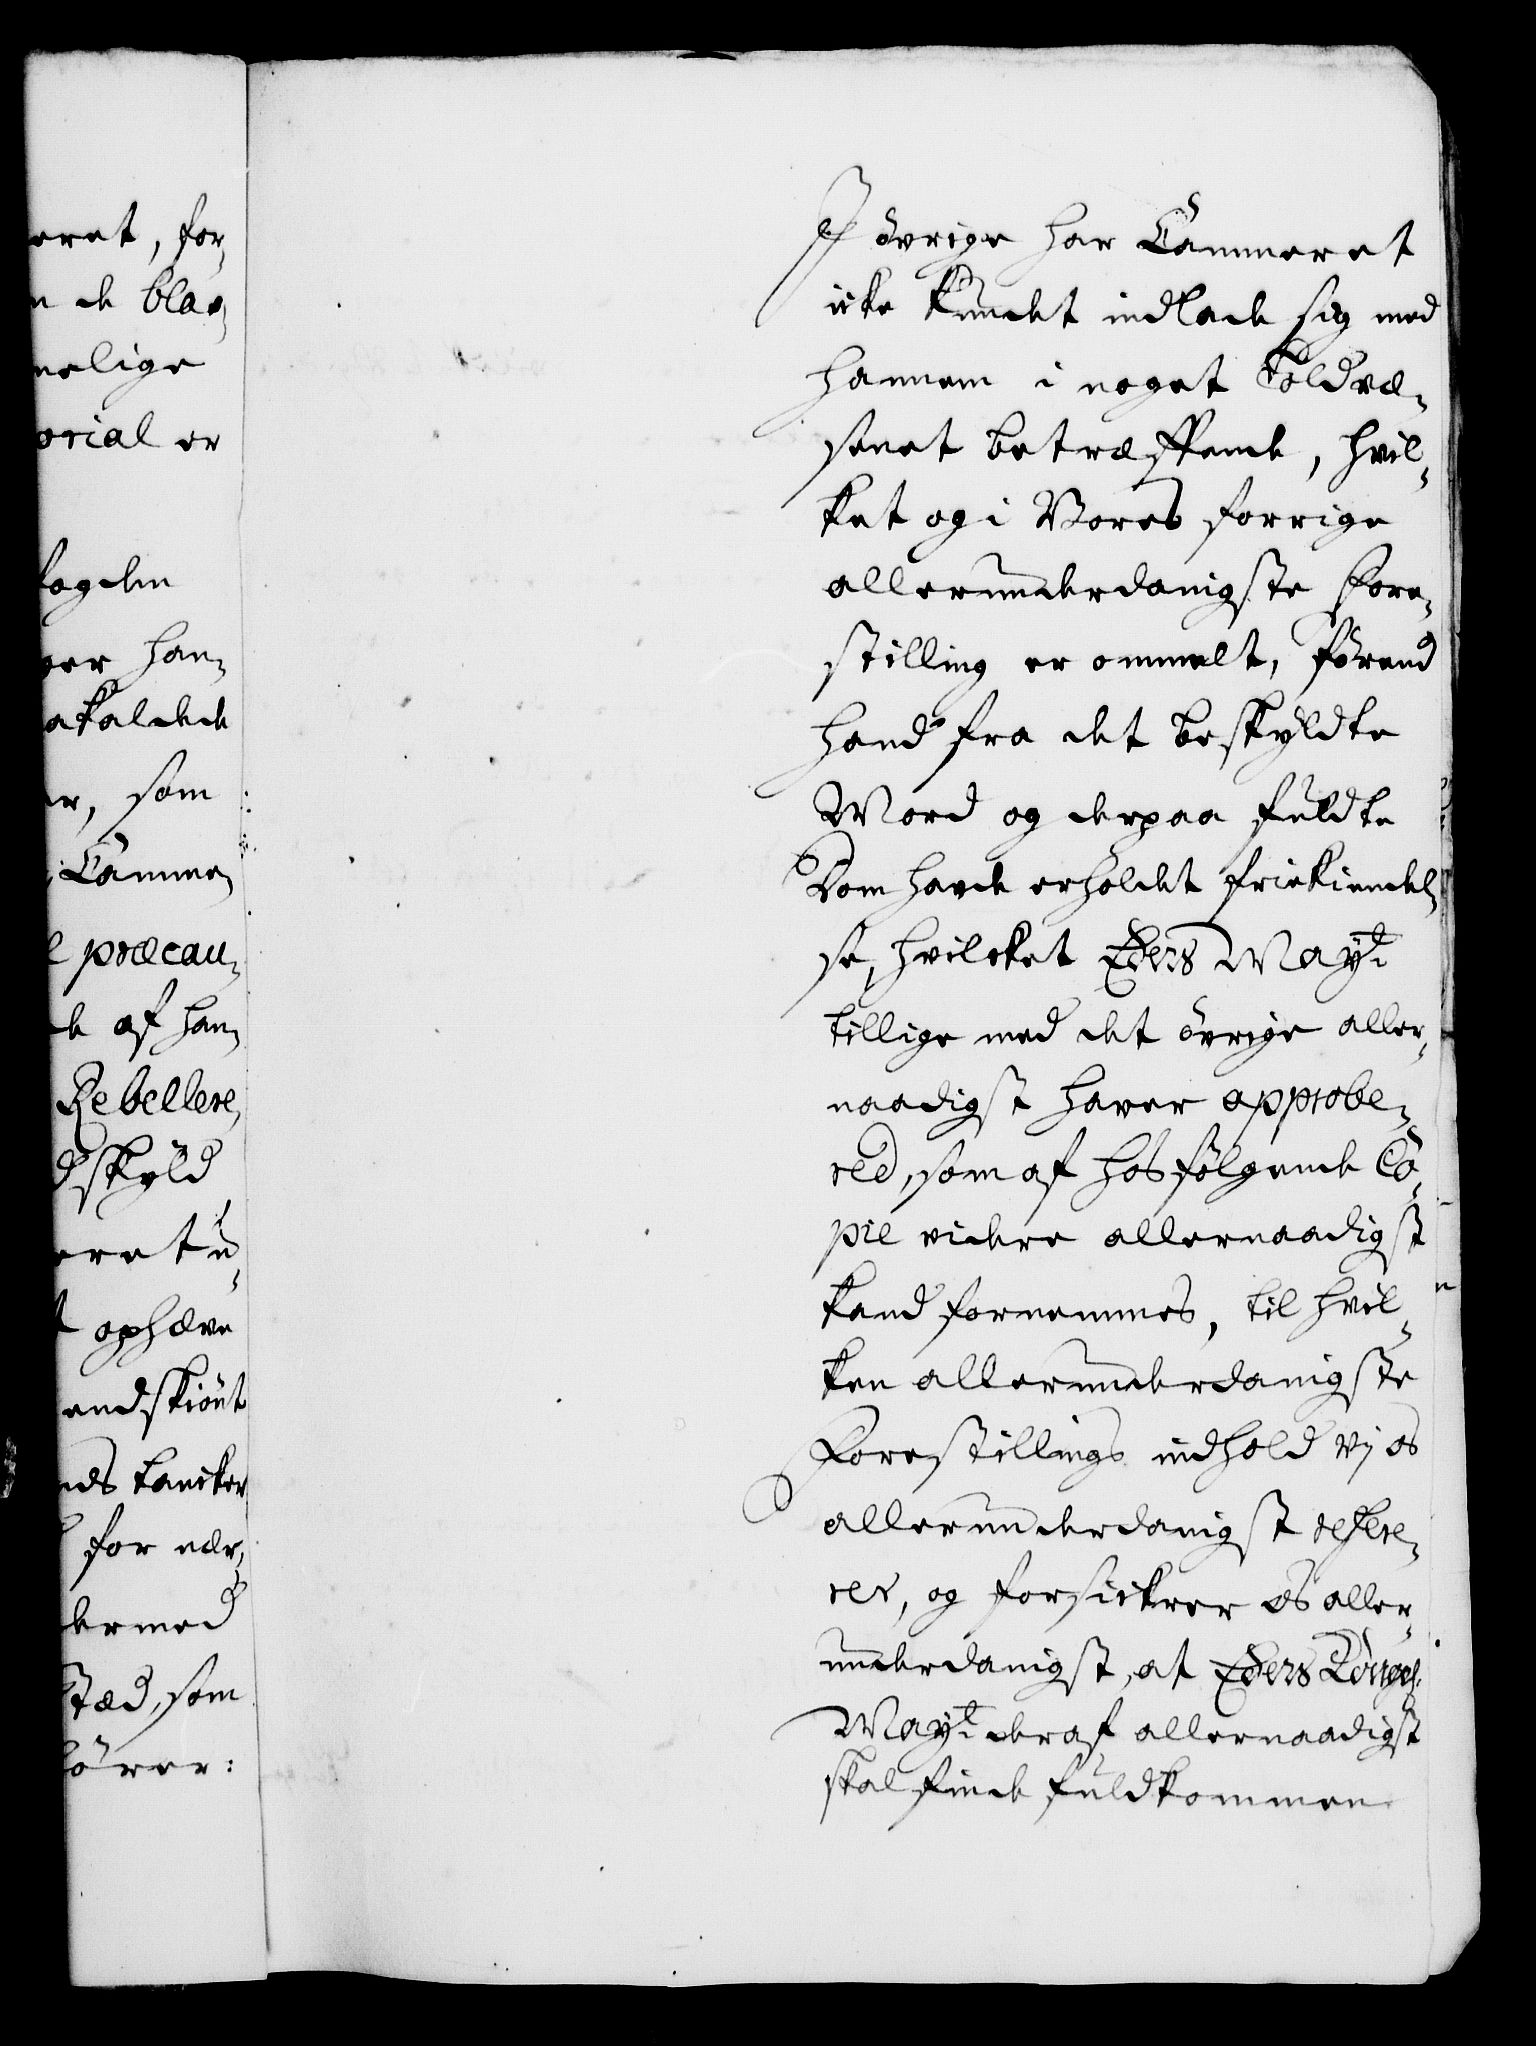 eret, for-
n de blae-
nelige
orial er
fogden
er han-
akaldede
er, som
Cammer-
l præcau-
de af han-
Rebellere,
dskyld
eretu-
t ophæve
endskiønt
nds tancker
for nær-
dermed
stæd, som
hörer:
I övrige har Cammeret
icke kundet indlade sig med
hannem i noget Toldvæ-
senet betræffende, hvil-
ket og i Vores forrige
allerunderdanigste Fore-
stilling er ommelt, förend
hand fra det beskyldte
Mord og derpaa fuldte
Dom havde erholdet friekiendel-
se, hvilcket Eders Mayt
tillige med det övrige aller-
naadigst haver approbe-
red, som af hosfölgende Co-
pie videre allernaadigst
kand fornemmes, til hvil-
ken allerunderdanigste
Forestillings indhold vj os
allerunderdanigst refere-
rer, og forsickrer os aller-
underdanigst, at Eders Kongel.
Mayt deraf allernaadigst
skal finde fuldkommen